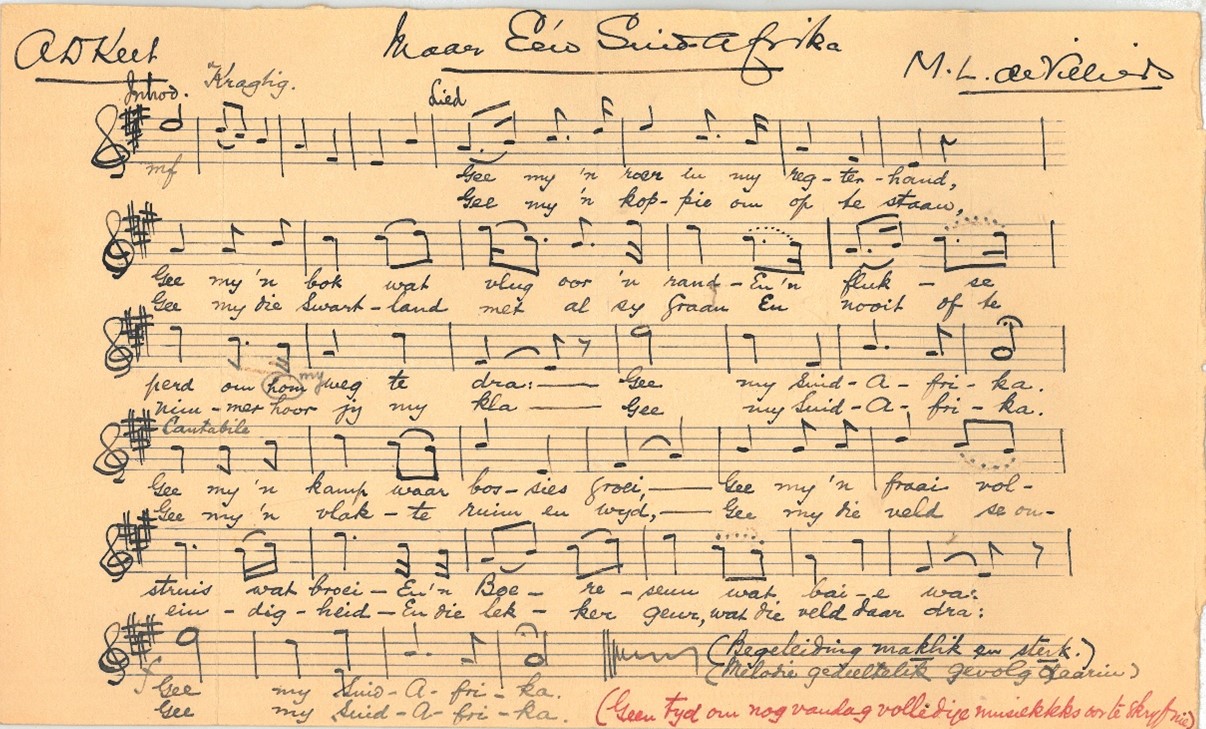 AD Keet
Maar Één Suid-Afrika
M. L. de Villiers
Introd. "Kragtig.
Lied
mf
Gee my 'n roer in my reg-ter-hand,
Gee my 'n kop-pie om op te staan,
Gee my 'n bok wat vlug oor 'n rand - En 'n fluk - se
Gee my die Swart-land met al sy graan En nooit of te
perd om hom my weg te dra: Gee my Suid-A-fri-ka.
nim-mer hoor jy my kla Gee my Suid-A-fri-ka.
Cantabile
Gee my 'n kamp waar bos-sies groei, Gee my 'n fraai vol-
Gee my 'n vlak-te ruim en wyd, Gee my die veld se on-
struis wat broei - En 'n Boe - re - seun wat bai-e wa:
ein-dig-heid - En die lek - ker geur, wat die veld daar dra:
(Begeleiding maklik en sterk.)
(Melodie gedeeltelik gevolg daarin)
f Gee my Suid-A-fri-ka.
Gee my Suid-A-fri-ka.
(Geen tyd om nog vandag volledige musiekteks oor te skryf nie)